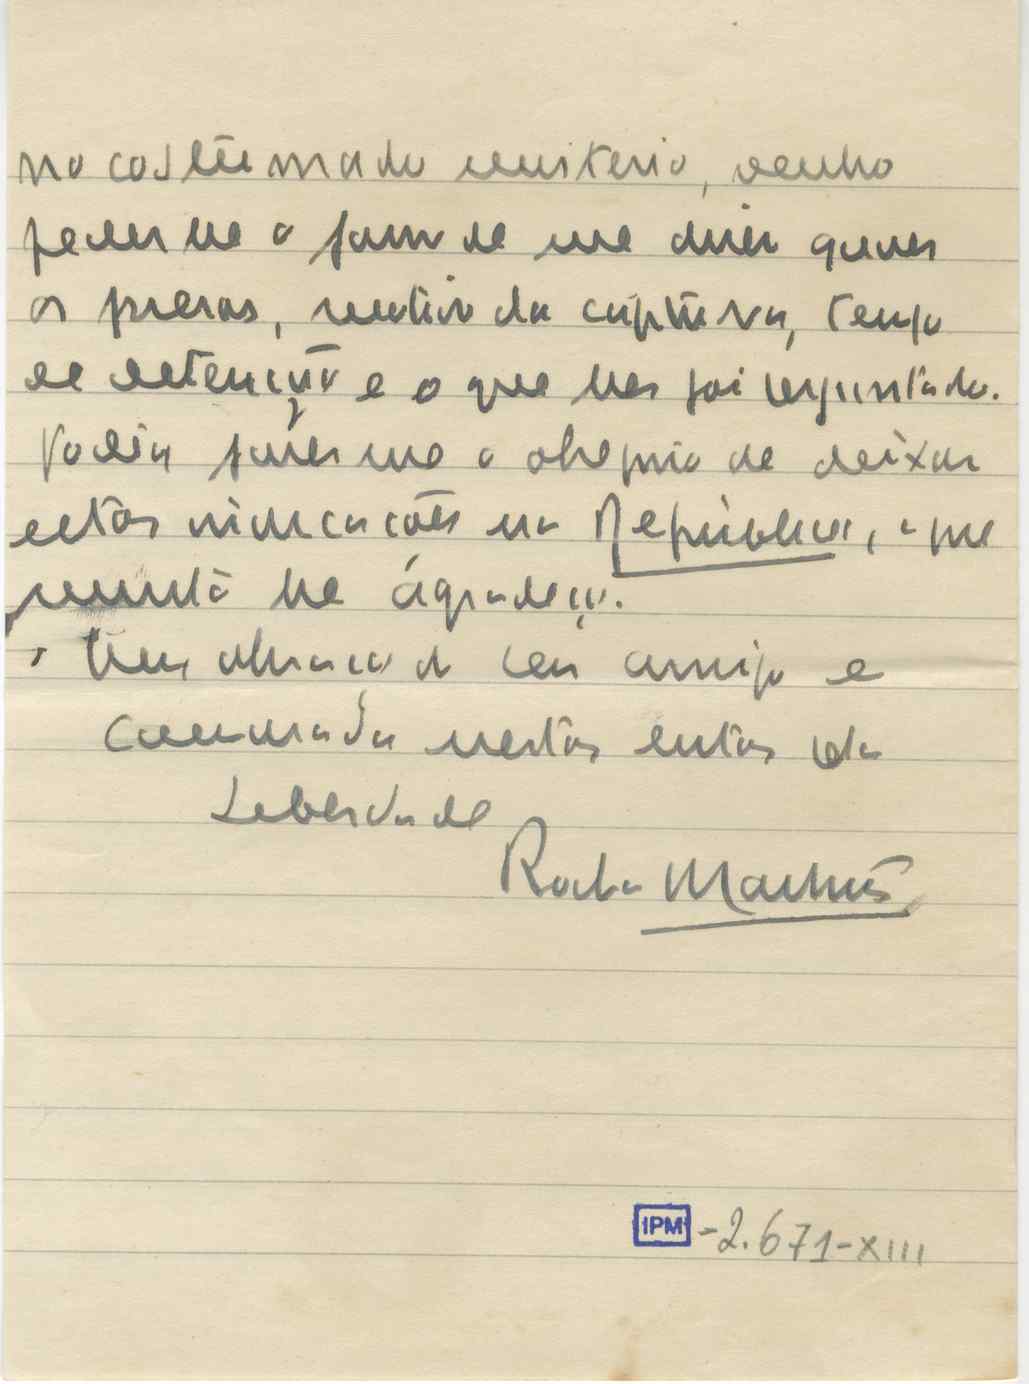 no costumado misterio, venho
pedir lhe o favor de me dizer quais
os presos, motivo da captura, tempo
de detenção e o que lhes foi perguntado.
Podia fazer me o obsequio de deixar
estas indicações na Republica, o que
muito lhe agradeço.
Um abraço do seu amigo e
camarada nestas lutas da
Liberdade
Rocha Martins
IPM -2.671-XIII